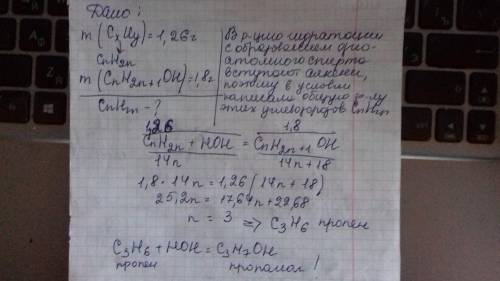 Дано:
m(CxHy) = 1,26 г
↓
CnH2n
m(CnH2n+1OH) = 1,8 г
CnHm - ?
В р-цию гидратации
с образованием одно-
атомного спирта
вступают алкены,
поэтому в условии
написала общую ф-лу
этих углеводородов CnH2n
1,26 1,8
CnH2n + HOH = CnH2n+1OH
14n 14n+18
1,8 · 14n = 1,26 (14n + 18)
25,2n = 17,64n + 22,68
n = 3 => C3H6 пропен
C3H6 + HOH = C3H7OH
пропен пропанол!